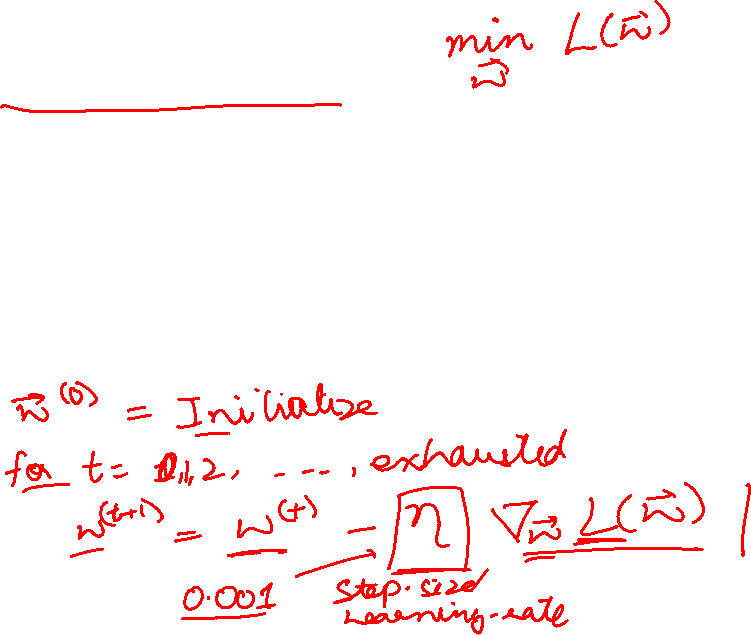 min L(w⃗)
w⃗
w⃗^(0) = Initialize
for t = 0,1,2, ----, exhausted
w^(t+1) = w^(t) - η ∇_w⃗ L(w⃗) |
0.001 step-size
Learning-rate